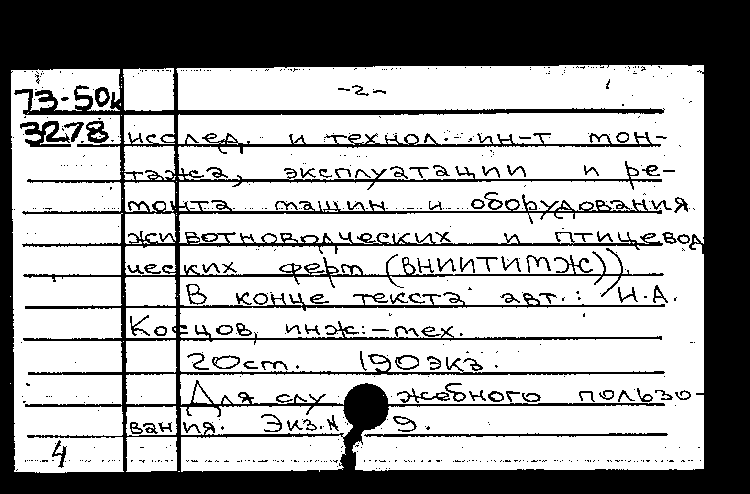 73-50к -2-
3278 исслед. и технол. ин-т мон-
тажа, эксплуатации и ре-
монта машин и оборудования
животноводческих и птицевод
ческих ферм (ВНИИТИМЖ)).
В конце текста авт.: И.А.
Косцов, инж.-мех.
20 ст. 190 экз.
Для служебного пользо-
вания. Экз. N 9.
4